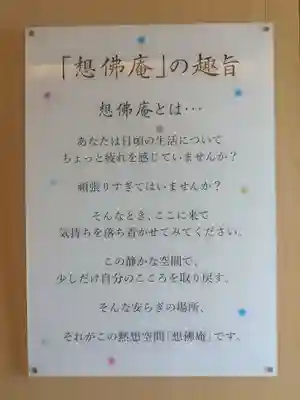 「想佛庵」の趣旨
想佛庵とは…
あなたは日頃の生活について
ちょっと疲れを感じていませんか？
頑張りすぎてはいませんか？
そんなとき、ここに来て
気持ちを落ち着かせてみてください。
この静かな空間で、
少しだけ自分のこころを取り戻す。
そんな安らぎの場所、
それがこの黙想空間「想佛庵」です。